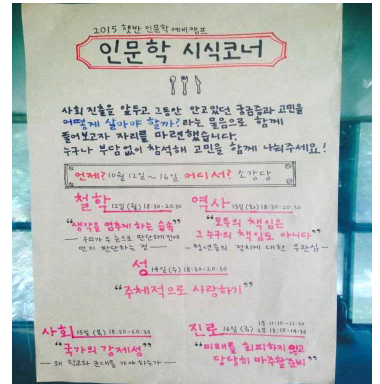 2015 햇반 인문학 예비캠프
인문학 시식코너
사회 진출을 앞두고 그동안 안고있던 궁금증과 고민을
어떻게 살아야 할까? 라는 물음으로 함께
풀어보고자 자리를 마련했습니다.
누구나 부담없이 참석해 고민을 함께 나눠주세요!
언제? 10월 12일~16일 어디서? 소강당
철학 12일(월) 18:30-20:30
"생각을 멈추게 하는 습속"
우리가 두 눈으로 판단하기 전에
먼저 판단하는 것
역사 13일(화) 18:30-20:30
"모두의 책임은
그 누구의 책임도 아니다"
청년들의 정치에 대한 무관심
성 14일(수) 18:30-20:30
"주체적으로 사랑하기"
사회 15일(목) 18:30-20:30
"국가의 강제성"
왜 학교와 군대를 가야 하는가
진로 16일(금) 1부 11:15-12:30
2부 18:15-19:30
"미래를 회피하지 않고
당당히 마주할 준비"